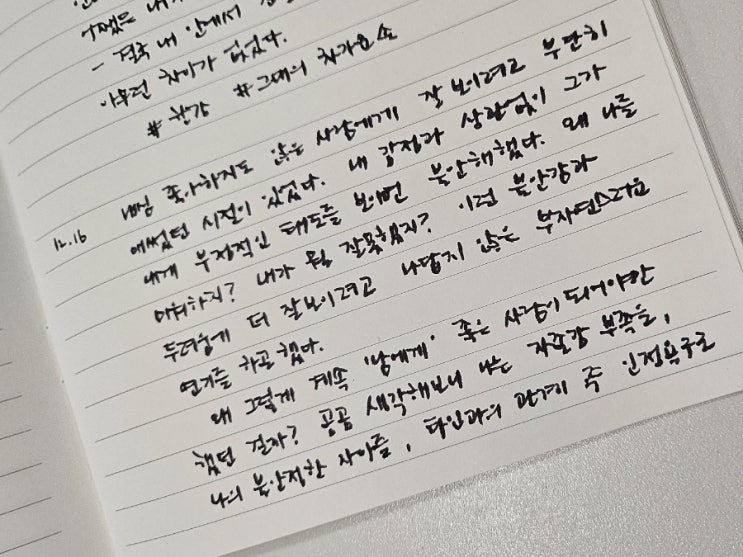 어쨌든 내가
- 결국 내 안에서
아무런 차이가 없었다.
#한강 #그대의 차가운손
12.16 별님 좋아하지도 않은 사람에게 잘 보이려고 부단히
애썼던 시절이 있었다. 내 감정과 상관없이 그가
내게 부정적인 태도를 보이면 불안해했다. 왜 나를
미워하지? 내가 뭘 잘못했지? 이런 불안감과
두려움에 더 잘보이려고 나답지 않은 부자연스러운
연기를 하곤 했다.
왜 그렇게 계속 '남에게' 좋은 사람이 되어야만
했던 걸까? 곰곰 생각해보니 나는 자존감 부족을,
나의 불안정한 자아를, 타인과의 관계에 즉 인정욕구로